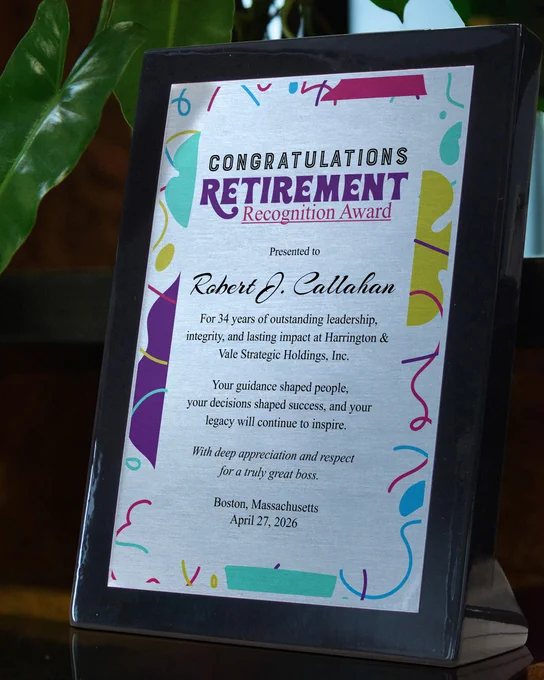 CONGRATULATIONS
RETIREMENT
Recognition Award
Presented to
Robert J. Callahan
For 34 years of outstanding leadership,
integrity, and lasting impact at Harrington &
Vale Strategic Holdings, Inc.
Your guidance shaped people,
your decisions shaped success, and your
legacy will continue to inspire.
With deep appreciation and respect
for a truly great boss.
Boston, Massachusetts
April 27, 2026